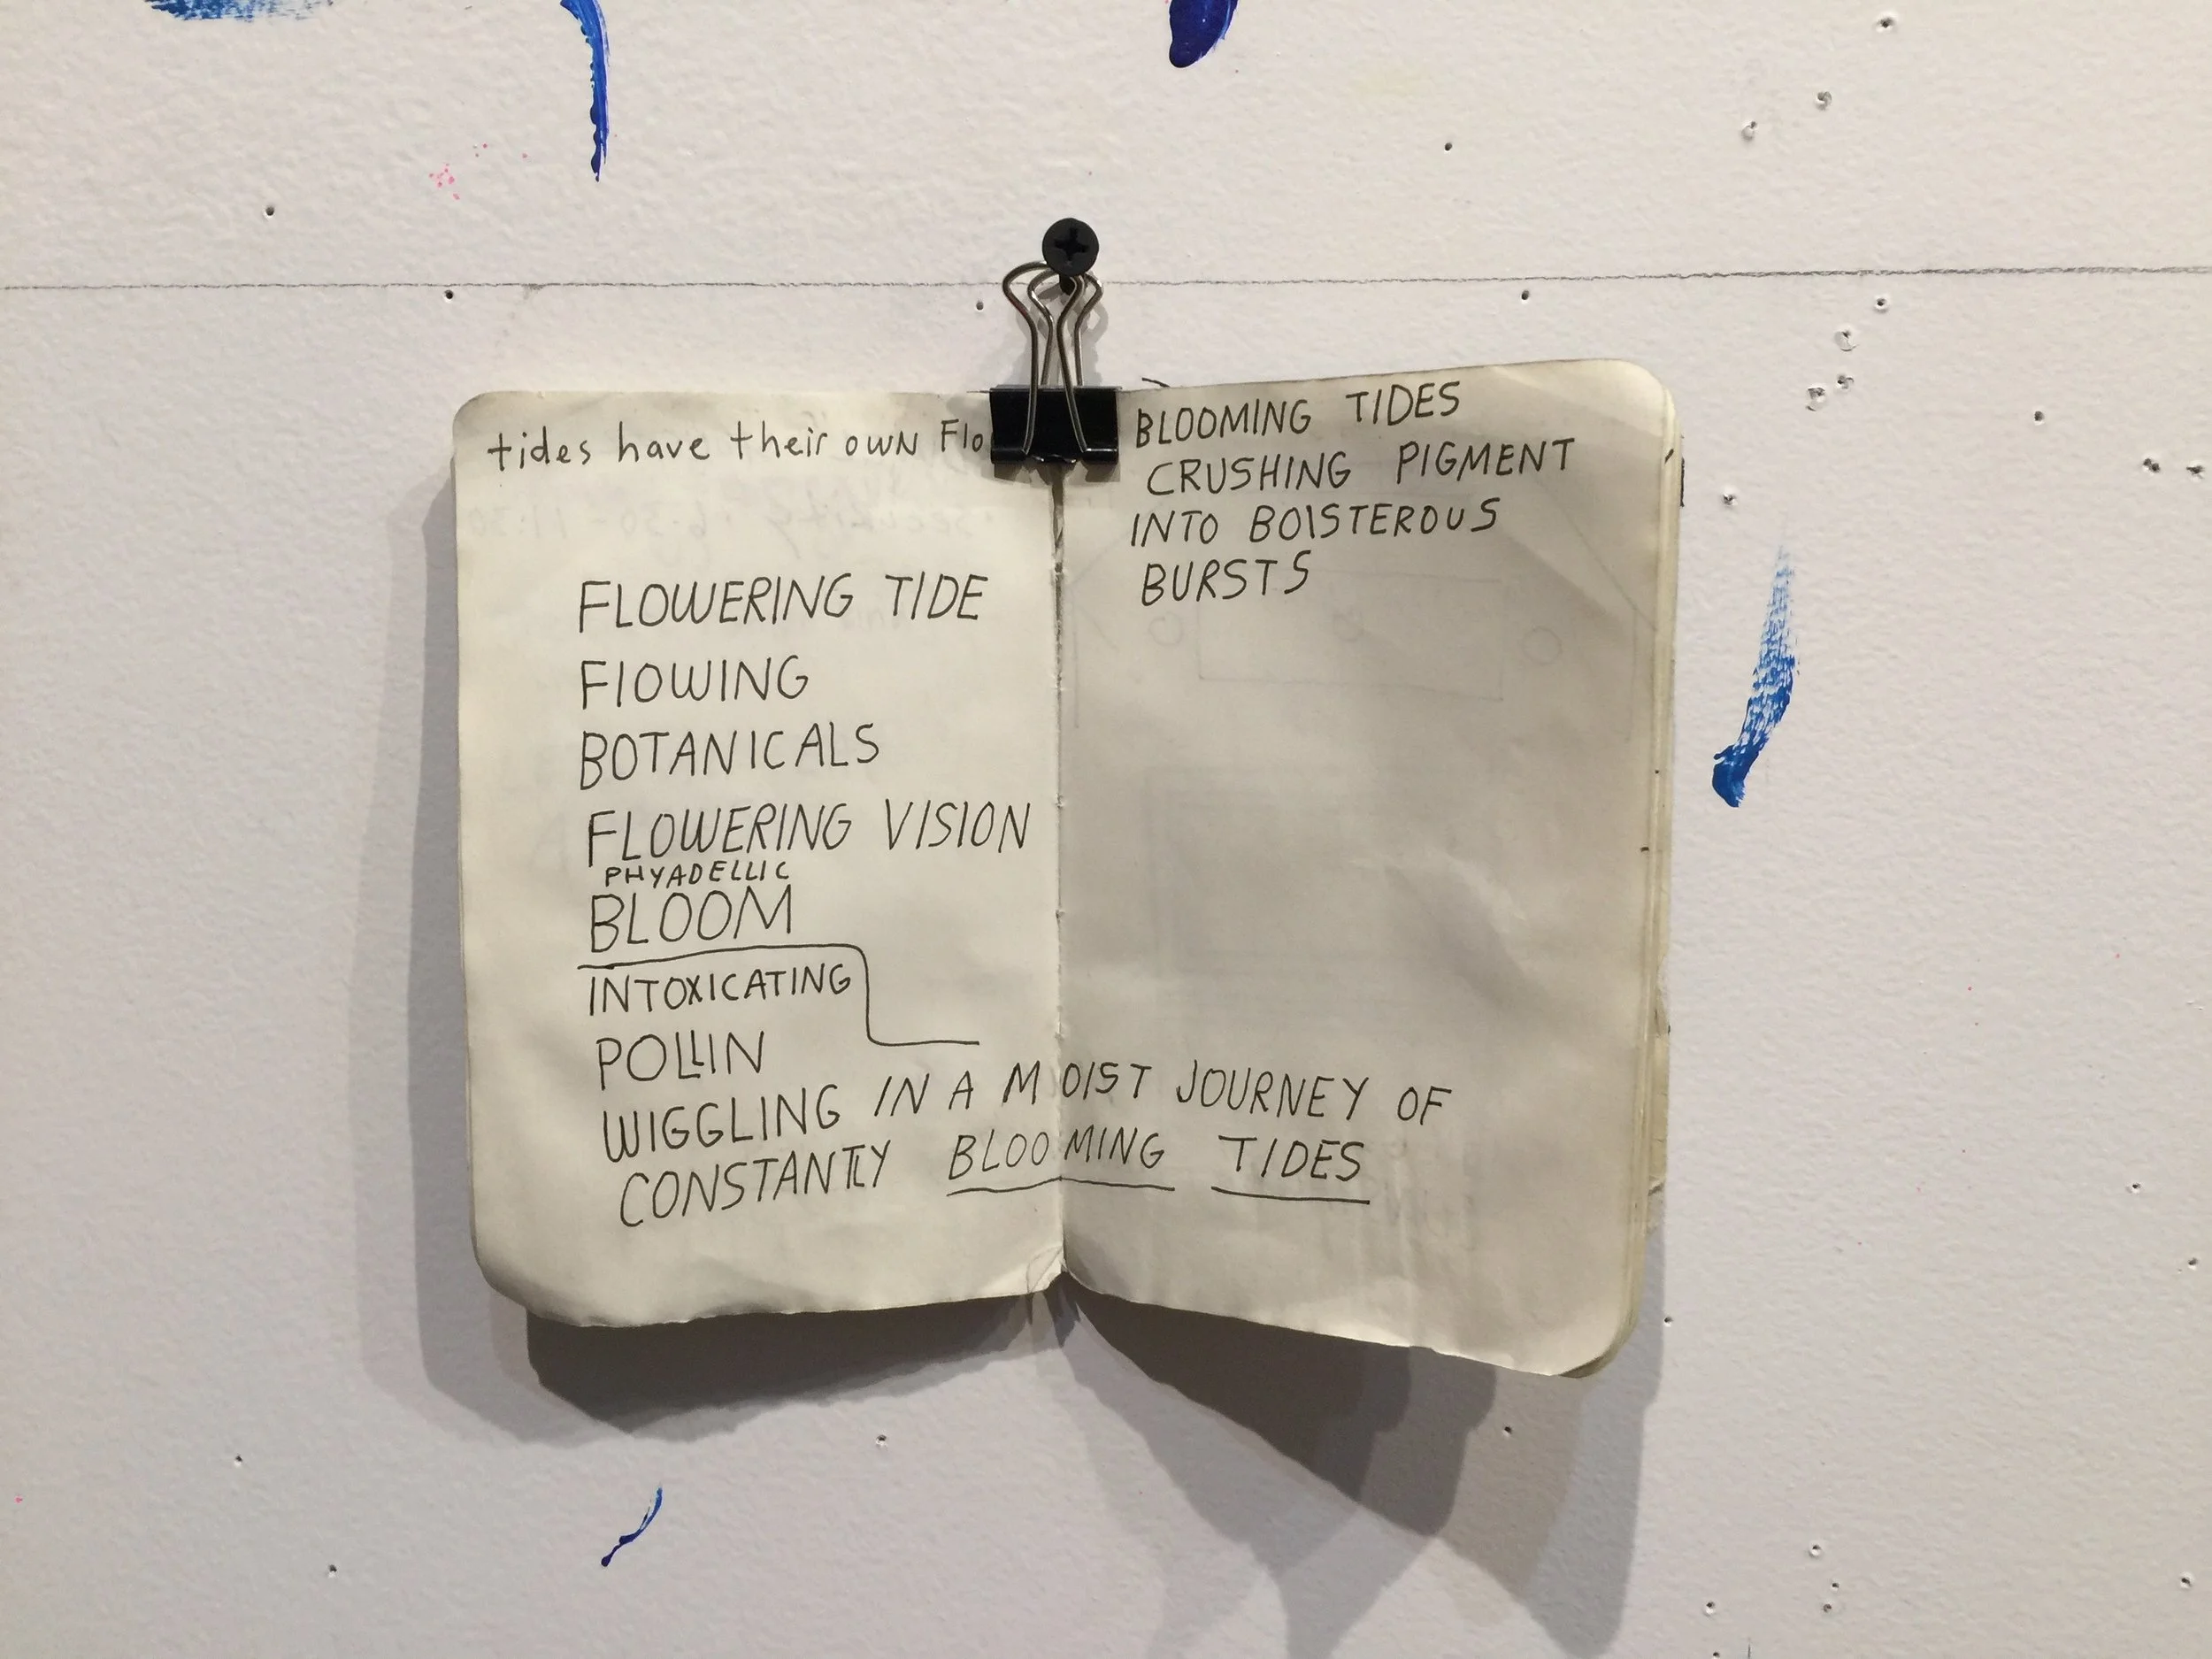 tides have their own Flo
FLOWERING TIDE
FlOWING
BOTANICALS
FLOWERING VISION
PHYADELLIC
BLOOM
INTOXICATING
POLLIN
WIGGLING IN A MOIST JOURNEY OF
CONSTANTLY BLOOMING TIDES
BLOOMING TIDES
CRUSHING PIGMENT
INTO BOISTEROUS
BURSTS